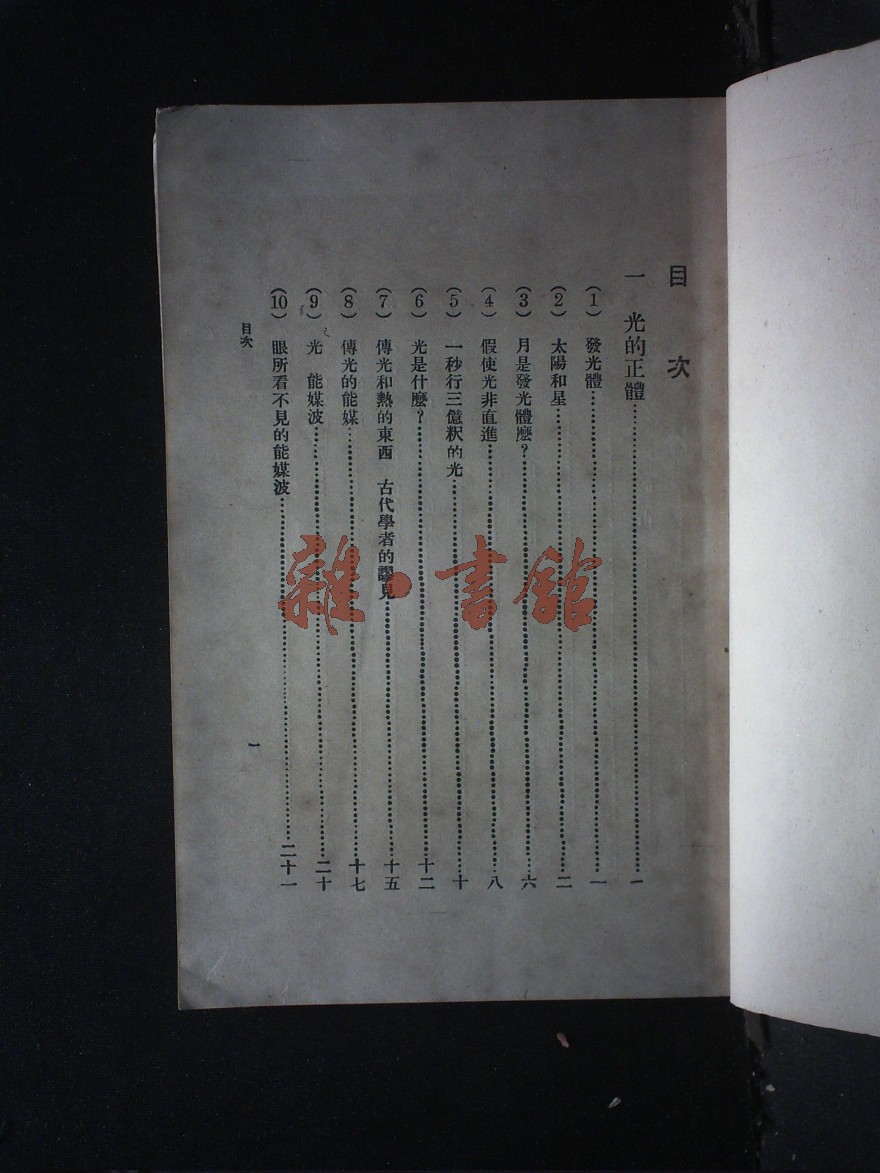 目次
一 光的正體……一
(1) 發光體……一
(2) 太陽和星……二
(3) 月是發光體麽?……六
(4) 假使光非直進……八
(5) 一秒行三億釈的光……十
(6) 光是什麽?……十二
(7) 傳光和熱的東西 古代學者的謬見……十五
(8) 傳光的能媒……十七
(9) 光 能媒波……二十
(10) 眼所看不見的能媒波……二十一
目次
一
雜·書館